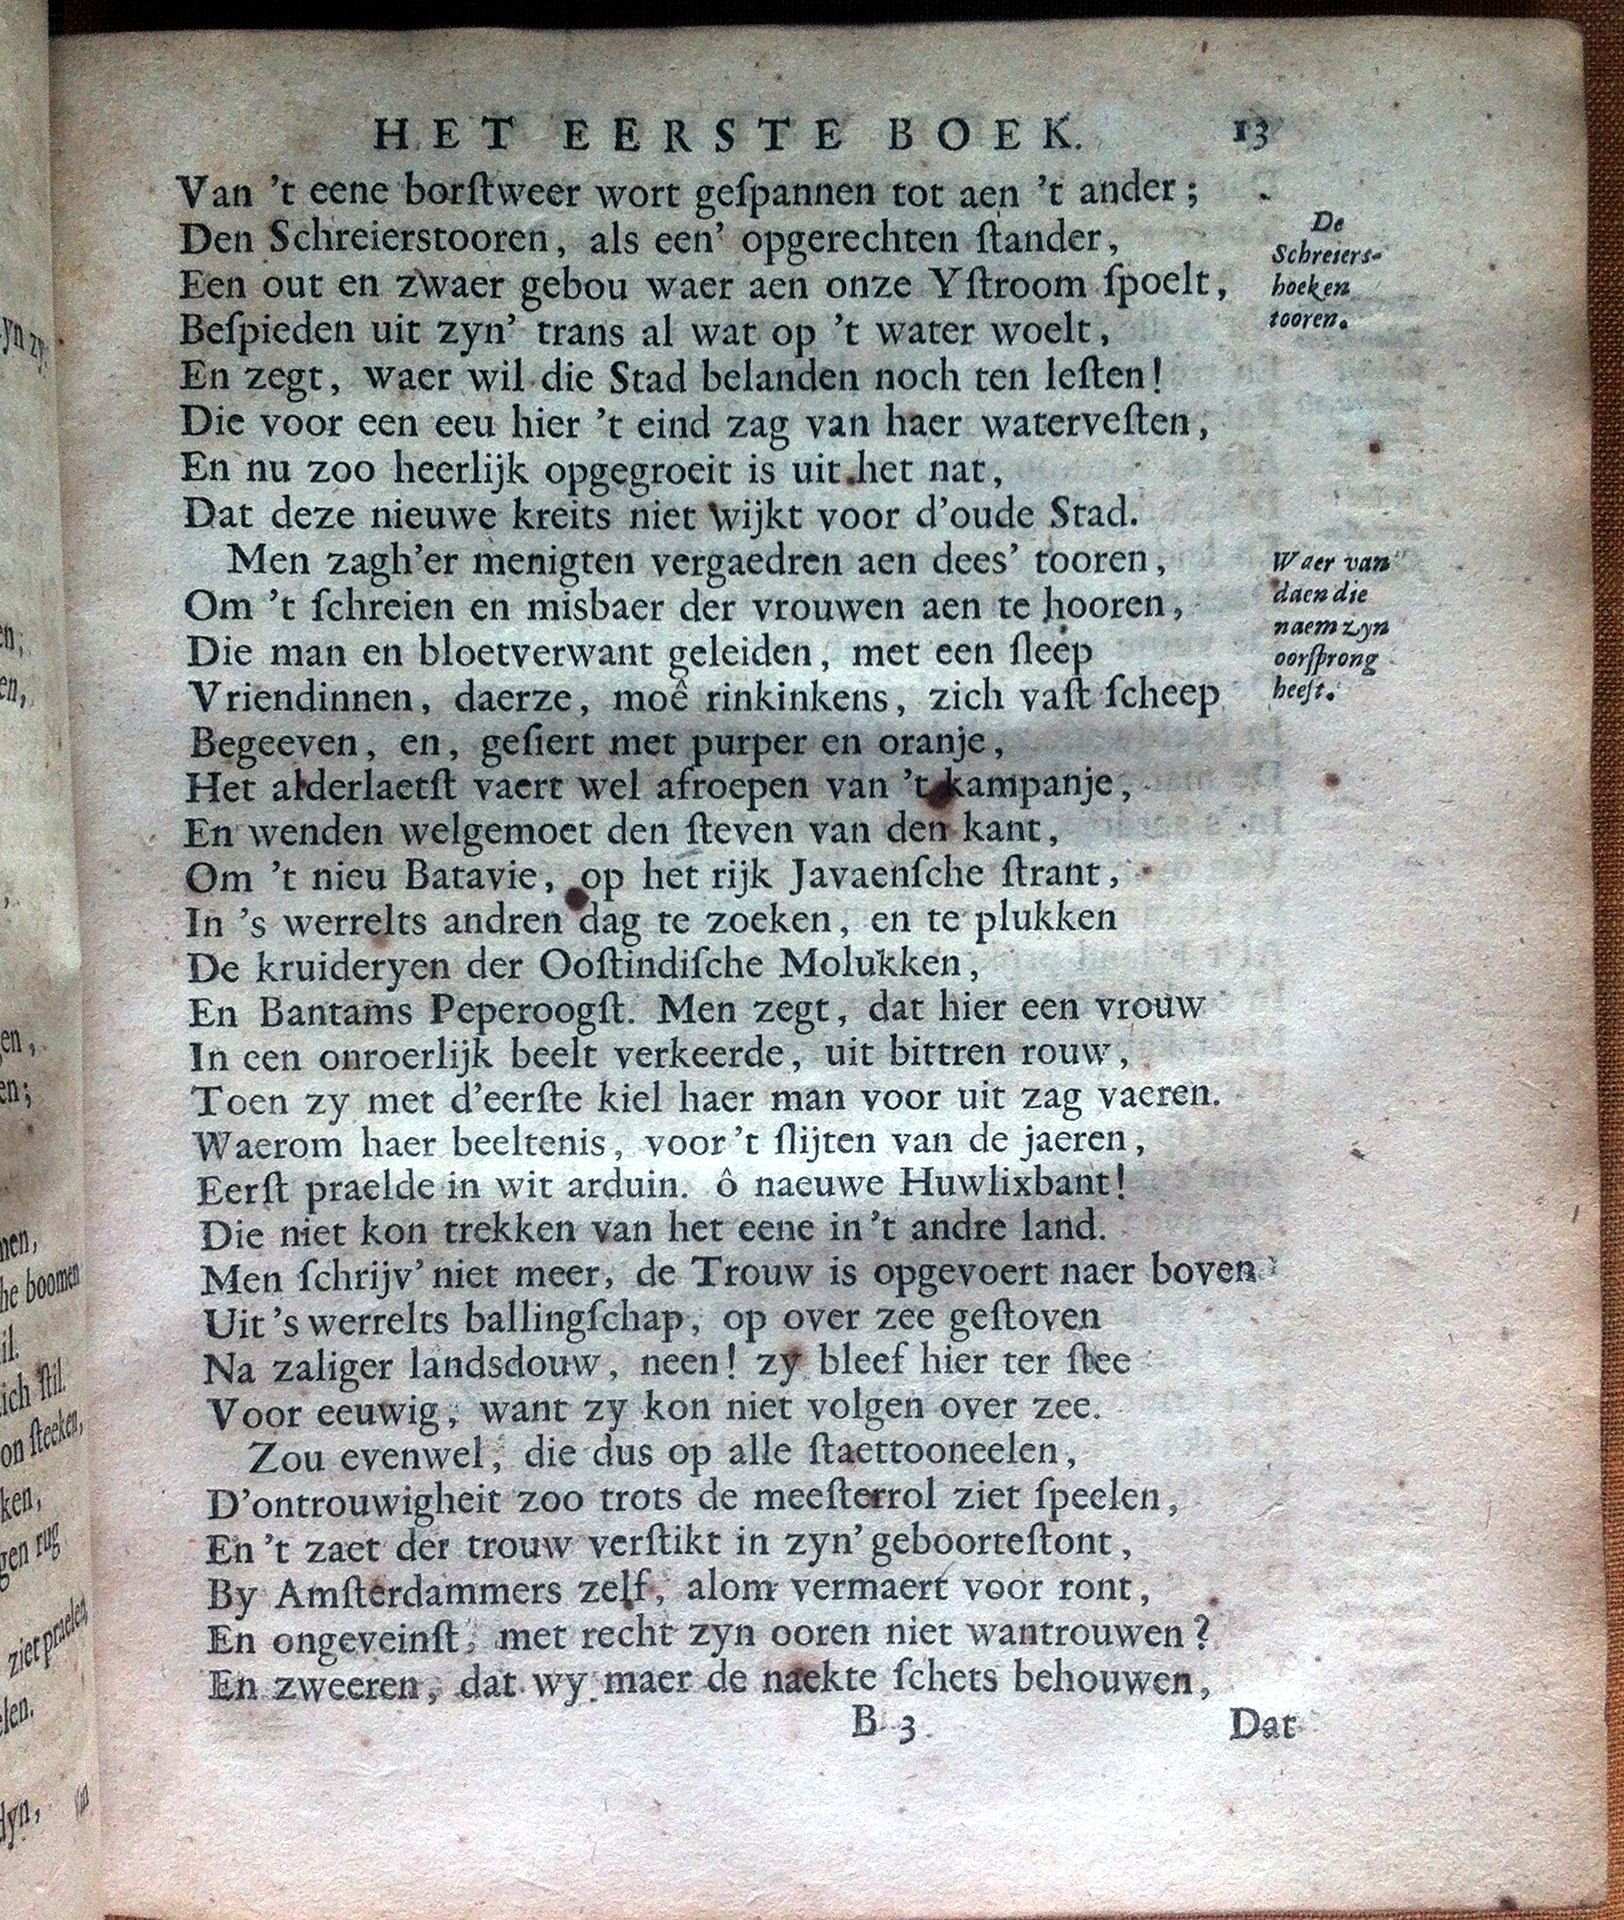 HET EERSTE BOEK. 13
Van 't eene borſtweer wort geſpannen tot aen 't ander;
Den Schreierstooren, als een' opgerechten ſtander,
Een out en zwaer gebou waer aen onze Yſtroom ſpoelt,
Beſpieden uit zyn' trans al wat op 't water woelt,
En zegt, waer wil die Stad belanden noch ten leſten!
Die voor een eeu hier 't eind zag van haer waterveſten,
En nu zoo heerlijk opgegroeit is uit het nat,
Dat deze nieuwe kreits niet wijkt voor d'oude Stad.
Men zagh'er menigten vergaedren aen dees' tooren,
Om 't ſchreien en misbaer der vrouwen aen te hooren,
Die man en bloetverwant geleiden, met een ſleep
Vriendinnen, daerze, moê rinkinkens, zich vaſt ſcheep
Begeeven, en, geſiert met purper en oranje,
Het alderlaetſt vaert wel afroepen van 't kampanje,
En wenden welgemoet den ſteven van den kant,
Om 't nieu Batavie, op het rijk Javaenſche ſtrant,
In 's werrelts andren dag te zoeken, en te plukken
De kruideryen der Ooſtindiſche Molukken,
En Bantams Peperoogſt. Men zegt, dat hier een vrouw
In een onroerlijk beelt verkeerde, uit bittren rouw,
Toen zy met d'eerſte kiel haer man voor uit zag vaeren.
Waerom haer beeltenis, voor 't ſlijten van de jaeren,
Eerſt praelde in wit arduin. ô naeuwe Huwlixbant!
Die niet kon trekken van het eene in 't andre land.
Men ſchrijv' niet meer, de Trouw is opgevoert naer boven
Uit 's werrelts ballingſchap, op over zee geſtoven
Na zaliger landsdouw, neen! zy bleef hier ter ſtee
Voor eeuwig, want zy kon niet volgen over zee.
Zou evenwel, die dus op alle ſtaettooneelen,
D'ontrouwigheit zoo trots de meeſterrol ziet ſpeelen,
En 't zaet der trouw verſtikt in zyn' geboorteſtont,
By Amſterdammers zelf, alom vermaert voor ront,
En ongeveinſt, met recht zyn ooren niet wantrouwen?
En zweeren, dat wy maer de naekte ſchets behouwen,
B 3 Dat
De
Schreiers-
hoek en
tooren.
Waer van
daen die
naem zyn
oorſprong
heeft.
yn zy
en,
en,
,
gen,
en;
nen,
he boomen
il.
ich ſtil.
on ſteeken,
ken,
gen rug
ziet praelen
elen.
dyn,
Van